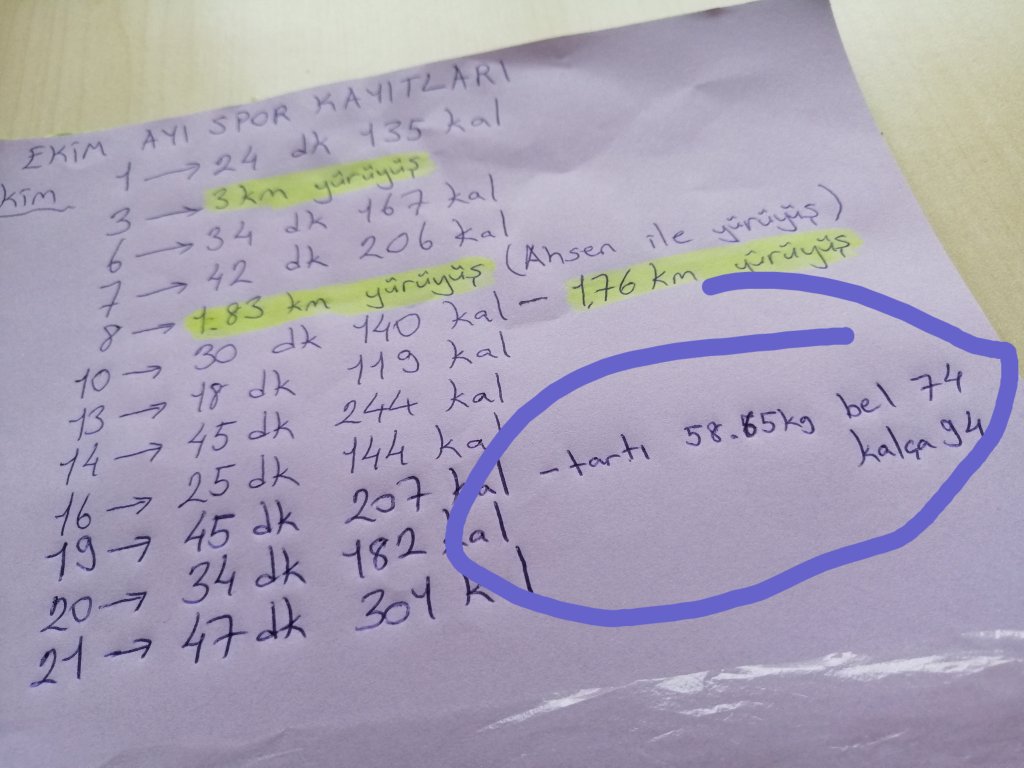 EKİM AYI SPOR KAYITLARI
kim 1 → 24 dk 135 kal
3 → 3 km yürüyüş
6 → 34 dk 167 kal
7 → 42 dk 206 kal
8 → 1.83 km yürüyüş (Ahsen ile yürüyüş)
10 → 30 dk 140 kal – 1,76 km yürüyüş
13 → 18 dk 119 kal
14 → 45 dk 244 kal
16 → 25 dk 144 kal
19 → 45 dk 207 kal – tartı 58.65kg bel 74
kalça 94
20 → 34 dk 182 kal
21 → 47 dk 304